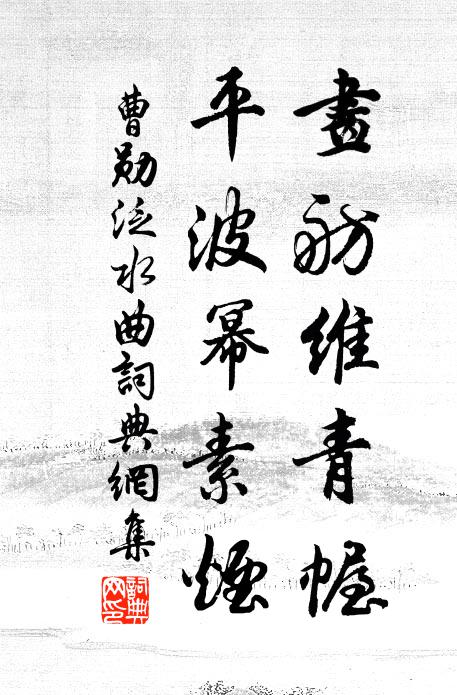 畫舫維青幄
平波冪素煙
曹勛泛水曲詞典網集
詞典网印